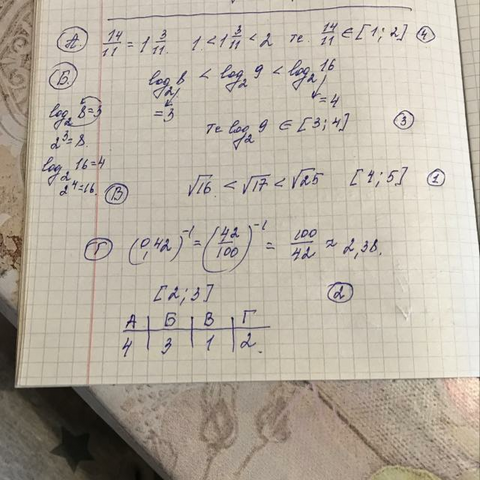 А 14/11 = 1 3/11. 1 < 1 3/11 < 2 те 14/11 ∈ [1; 2] 4
Б log₂ 8 < log₂ 9 < log₂ 16
= 3 = 4
log₂ 8 = 3
2³ = 8.
те log₂ 9 ∈ [3; 4] 3
log₂ 16 = 4
2⁴ = 16
В √16 < √17 < √25 [4; 5] 1
Г (0,42)⁻¹ = (42/100)⁻¹ = 100/42 ≈ 2,38.
[2; 3] 2
А | Б | В | Г
4 | 3 | 1 | 2.